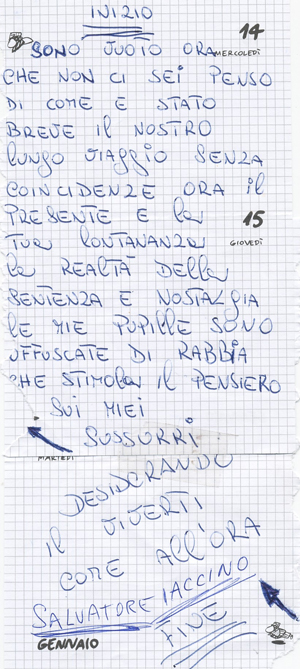 INIZIO
14
SONO VUOTO ORA
MERCOLEDÌ
CHE NON CI SEI PENSO
DI COME E STATO
BREVE IL NOSTRO
LUNGO VIAGGIO SENZA
COINCIDENZE ORA IL
PRESENTE E LA
15
TUA LONTANANZA
GIOVEDÌ
LA REALTÀ DELLA
SENTENZA E NOSTALGIA
LE MIE PUPILLE SONO
OFFUSCATE DI RABBIA
CHE STIMOLA IL PENSIERO
SUI MIEI
SUSSURRI
MARTEDÌ
DESIDERANDO
IL VIVERTI
COME ALL'ORA
SALVATORE IACCINO
FINE
GENNAIO